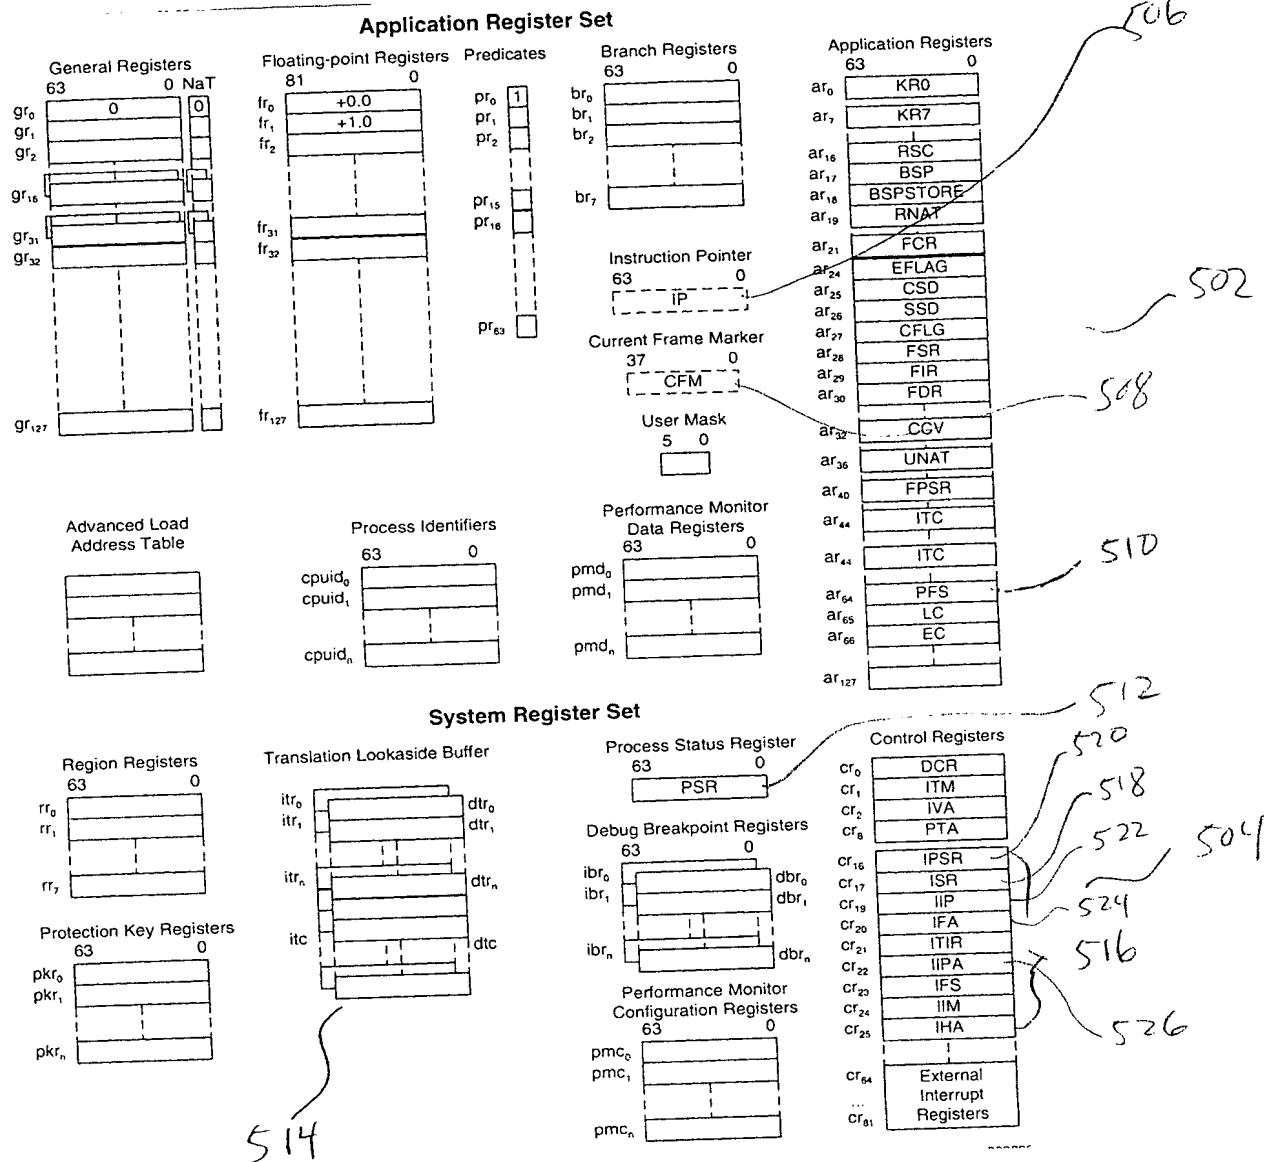 Application Register Set
506
General Registers
63 0 NaT
gr0 0 0
gr1
gr2
gr16
gr31
gr32
gr127
Floating-point Registers
81 0
fr0 +0.0
fr1 +1.0
fr2
fr31
fr32
fr127
Predicates
pr0 1
pr1
pr2
pr15
pr16
pr63
Branch Registers
63 0
br0
br1
br2
br7
Instruction Pointer
63 0
IP
Current Frame Marker
37 0
CFM
User Mask
5 0
Application Registers
63 0
ar0 KR0
ar7 KR7
ar16 RSC
ar17 BSP
ar18 BSPSTORE
ar19 RNAT
ar21 FCR
ar24 EFLAG
ar25 CSD
ar26 SSD
ar27 CFLG
ar28 FSR
ar29 FIR
ar30 FDR
ar32 CGV
ar36 UNAT
ar40 FPSR
ar44 ITC
ar44 ITC
ar64 PFS
ar65 LC
ar66 EC
ar127
502
508
510
Advanced Load
Address Table
Process Identifiers
63 0
cpuid0
cpuid1
cpuidn
Performance Monitor
Data Registers
63 0
pmd0
pmd1
pmdn
System Register Set
512
Region Registers
63 0
rr0
rr1
rr7
Protection Key Registers
63 0
pkr0
pkr1
pkrn
Translation Lookaside Buffer
itr0 dtr0
itr1 dtr1
itrn dtrn
itc dtc
514
Process Status Register
63 0
PSR
Debug Breakpoint Registers
63 0
ibr0 dbr0
ibr1 dbr1
ibrn dbrn
Performance Monitor
Configuration Registers
63 0
pmc0
pmc1
pmcn
Control Registers
cr0 DCR
cr1 ITM
cr2 IVA
cr8 PTA
cr16 IPSR
cr17 ISR
cr19 IIP
cr20 IFA
cr21 ITIR
cr22 IIPA
cr23 IFS
cr24 IIM
cr25 IHA
cr64 External
... Interrupt
cr81 Registers
520
518
522
504
524
516
526